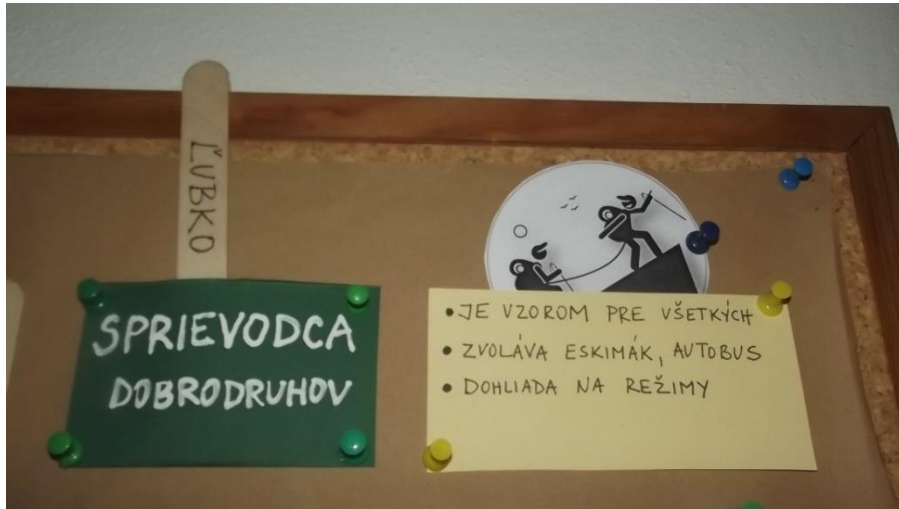 ĽUBKO
SPRIEVODCA
DOBRODRUHOV
• JE VZOROM PRE VŠETKÝCH
• ZVOLÁVA ESKIMÁK, AUTOBUS
• DOHLIADA NA REŽIMY